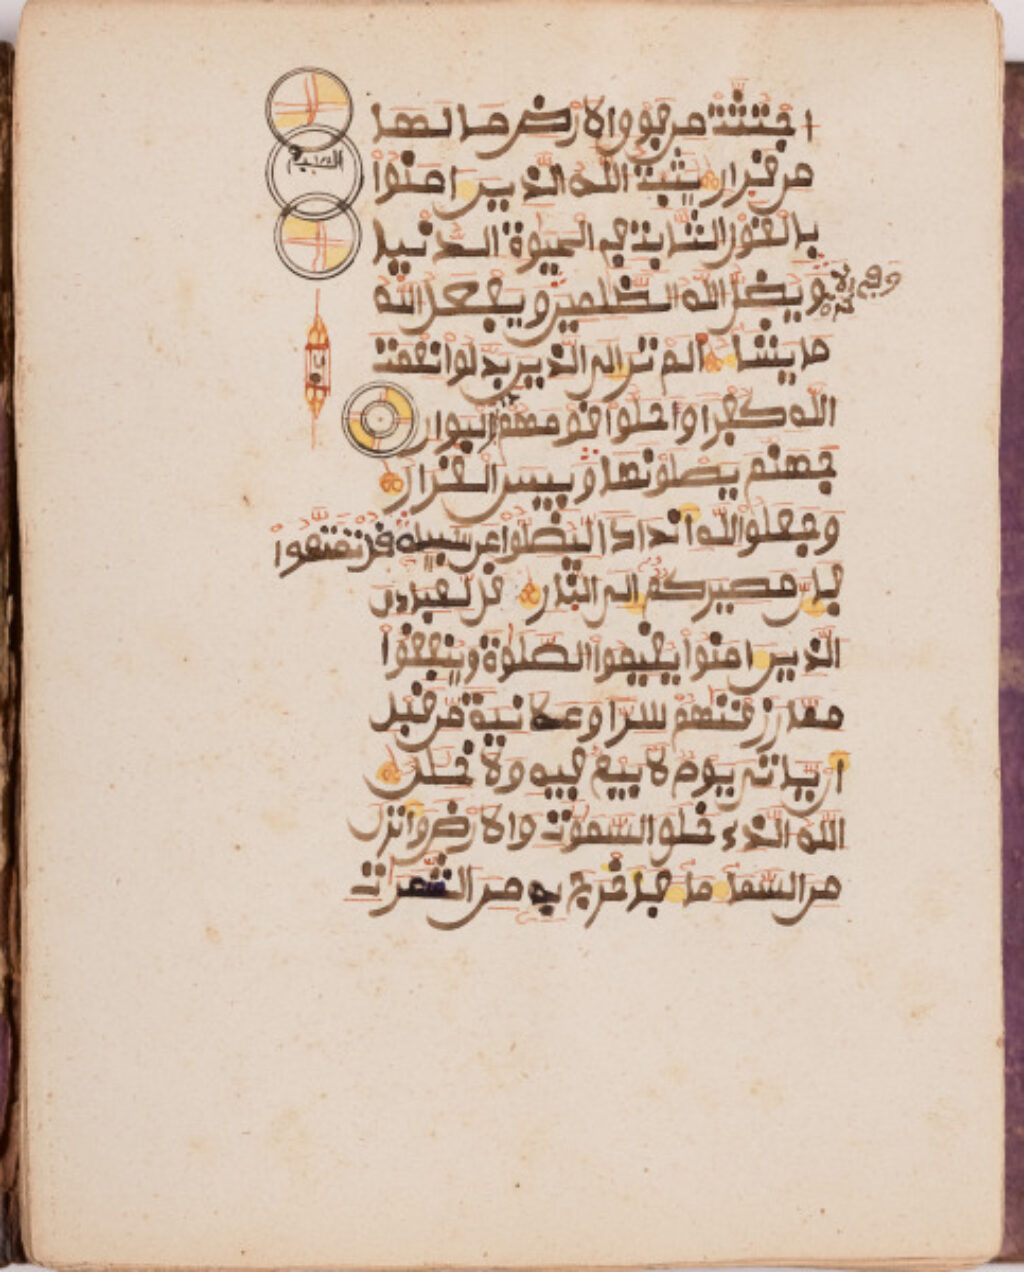 اجتثت من فوق الارض ما لها
من قرار يثبت الله الذين امنوا
بالقول الثابت في الحيوة الدنيا
وفي الاخرة
ويضل الله الظلمين ويفعل الله
ما يشا الم تر الى الذين بدلوا نعمت
الله كفرا واحلوا قومهم دار البوار
جهنم يصلونها وبيس القرار
وجعلوا لله اندادا ليضلوا عن سبيله قل تمتعوا
فان مصيركم الى النار قل لعبادي
الذين امنوا يقيموا الصلوة وينفقوا
مما رزقنهم سرا وعلانية من قبل
ان ياتي يوم لا بيع فيه ولا خلل
الله الذي خلق السموت والارض وانزل
من السما ما فاخرج به من الثمرات